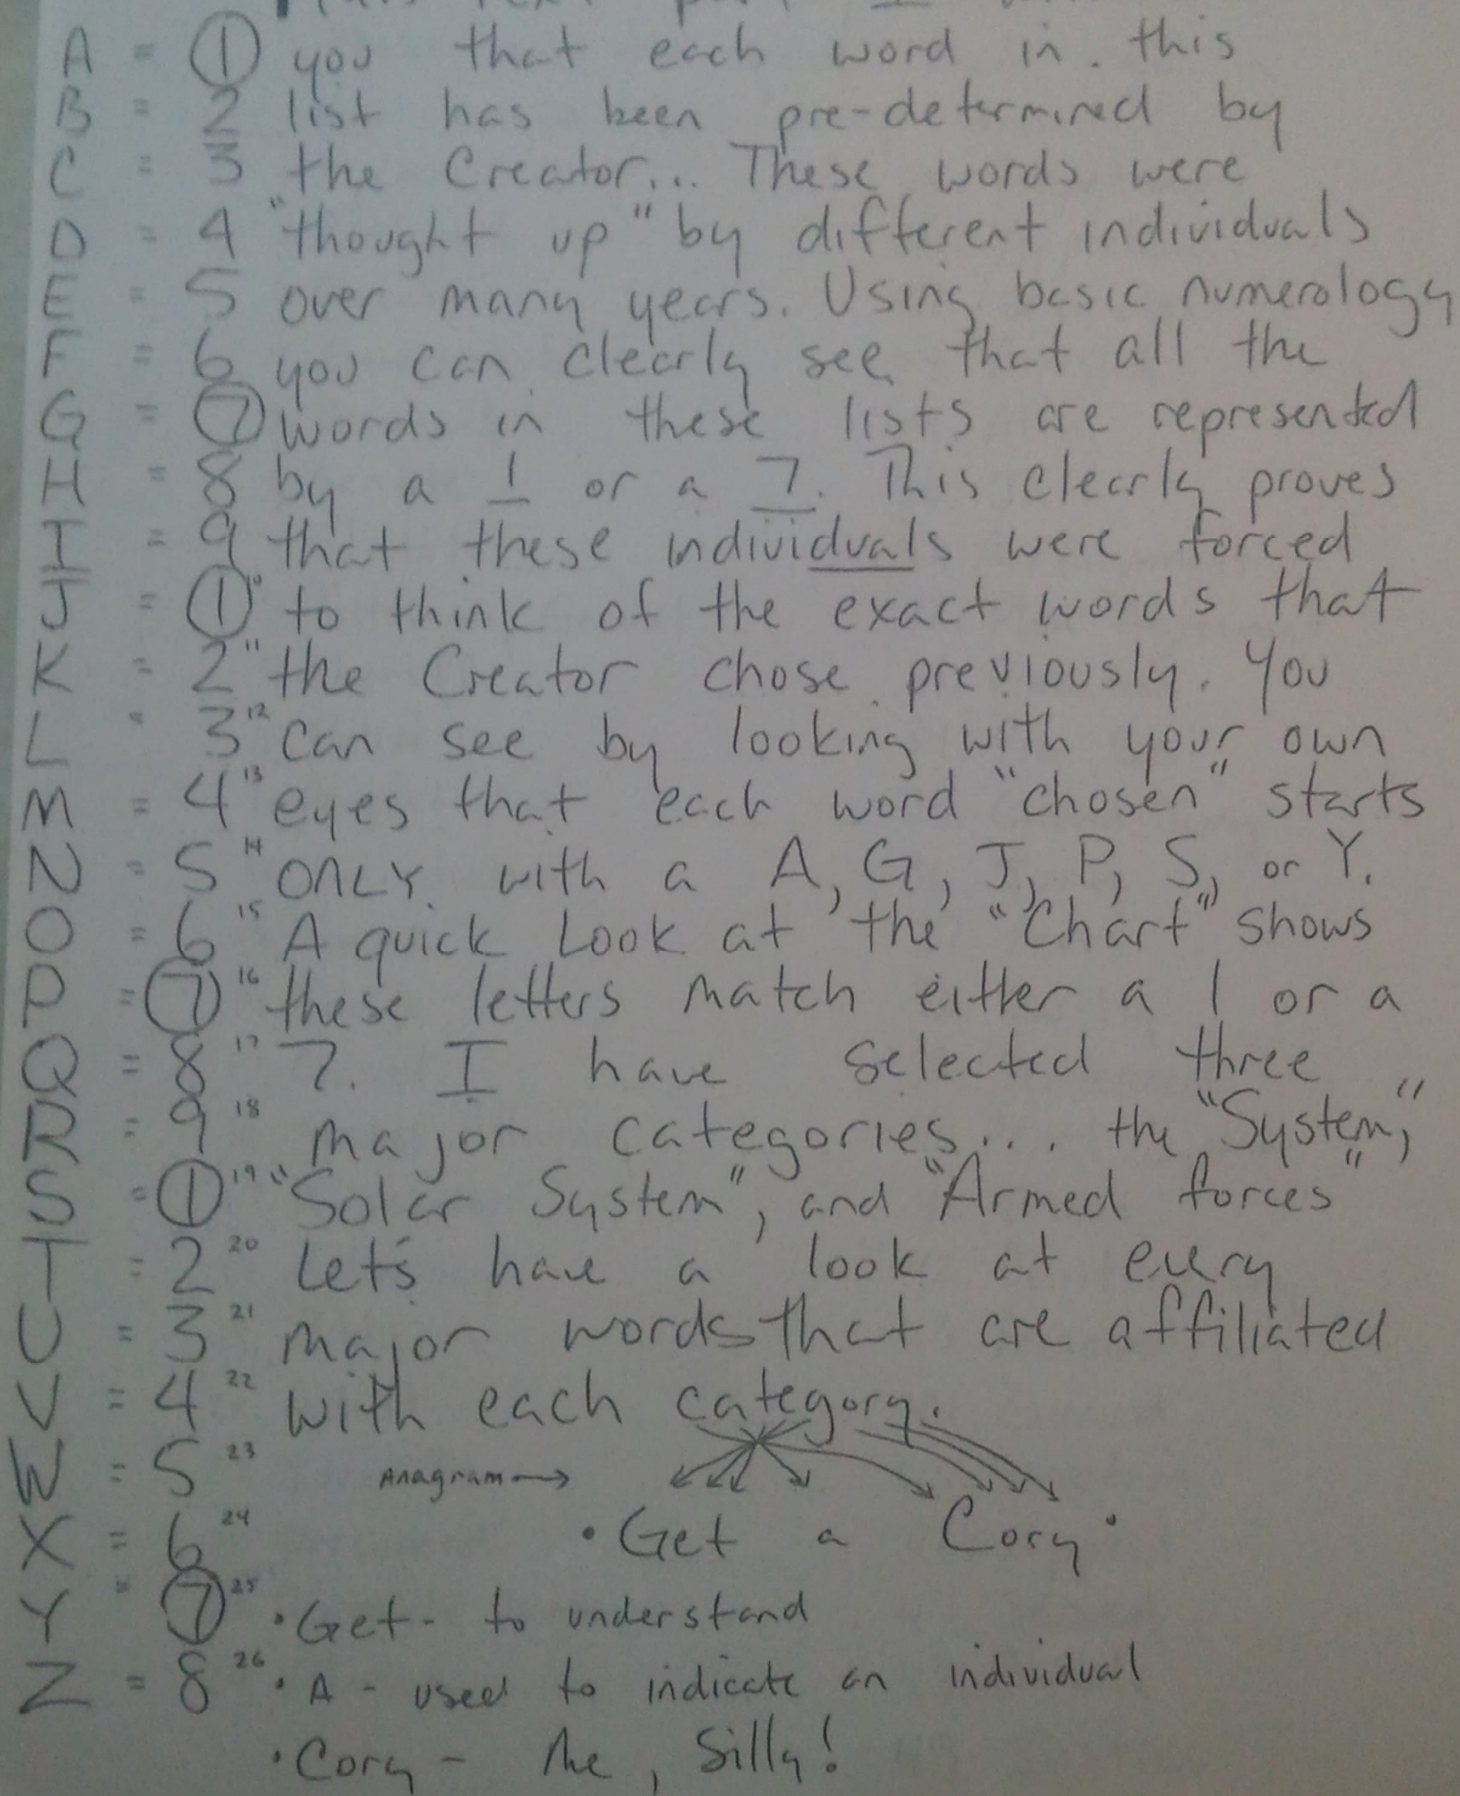 A = 1 you that each word in this
B = 2 list has been pre-determined by
C = 3 the Creator... These words were
D = 4 "thought up" by different individuals
E = 5 over many years. Using basic numerology
F = 6 you can clearly see that all the
G = 7 words in these lists are represented
H = 8 by a 1 or a 7. This clearly proves
I = 9 that these individuals were forced
J = 1 10 to think of the exact words that
K = 2 11 the Creator chose previously. You
L = 3 12 can see by looking with your own
M = 4 13 eyes that each word "chosen" starts
N = 5 14 ONLY with a A, G, J, P, S, or Y.
O = 6 15 A quick Look at the "Chart" shows
P = 7 16 these letters match either a 1 or a
Q = 8 17 7. I have selected three
R = 9 18 major categories... the "System,"
S = 1 19 "Solar System", and "Armed forces"
T = 2 20 Let's have a look at every
U = 3 21 major words that are affiliated
V = 4 22 with each category.
W = 5 23 Anagram →
X = 6 24 • Get a Cory •
Y = 7 25 • Get - to understand
Z = 8 26 • A - used to indicate an individual
• Cory - Me, Silly!